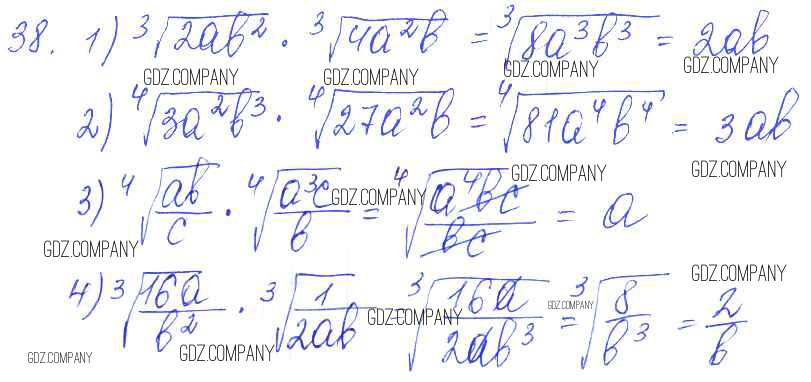 38. 1) ∛(2ab²) · ∛(4a²b) = ∛(8a³b³) = 2ab
GDZ.COMPANY GDZ.COMPANY GDZ.COMPANY GDZ.COMPANY
2) ∜(3a²b³) · ∜(27a²b) = ∜(81a⁴b⁴) = 3ab
GDZ.COMPANY GDZ.COMPANY
3) ∜(ab/c) · ∜(a³c/b) = ∜(a⁴bc/bc) = a
GDZ.COMPANY GDZ.COMPANY
GDZ.COMPANY
4) ∛(16a/b²) · ∛(1/2ab) = ∛(16a/2ab³) = ∛(8/b³) = 2/b
GDZ.COMPANY GDZ.COMPANY GDZ.COMPANY GDZ.COMPANY